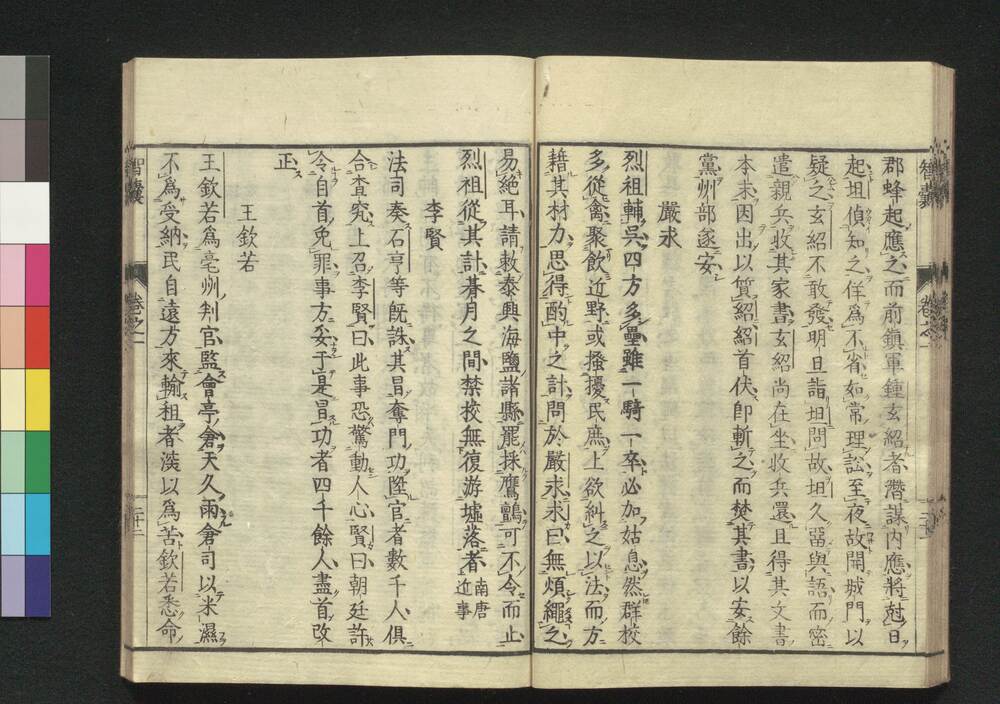 郡蜂起應之而前鎮軍鍾玄紹者潛謀内應將尅日
起坦偵知之佯為不省如常理訟至夜故開城門以
疑之玄紹不敢發明旦詣坦問故坦久畱與語而密
遣親兵收其家書玄紹尚在坐收兵還且得其文書
本末因出以質紹紹首伏即斬之而焚其書以安餘
黨州部遂安
嚴求
烈祖輔吳四方多壘雖一騎一卒必加姑息然群校
多從禽聚飲近野或搔擾民庶上欲糾之以法而方
藉其材力思得酌中之計問於嚴求求曰無煩繩之
易絶耳請敕泰興海鹽諸縣罷採鷹鸇可不令而止
烈祖從其計朞月之間禁校無復游墟落者南唐近事
李賢
法司奏石亨等既誅其冒奪門功陞官者數千人俱
合査究上召李賢曰此事恐驚動人心賢曰朝廷許
令自首免罪事方妥于是冒功者四千餘人盡首改
正
王欽若
王欽若為亳州判官監會亭倉天久雨倉司以米濕
不為受納民自遠方來輸租者湙以為苦欽若悉命
智囊
卷之一
二十二